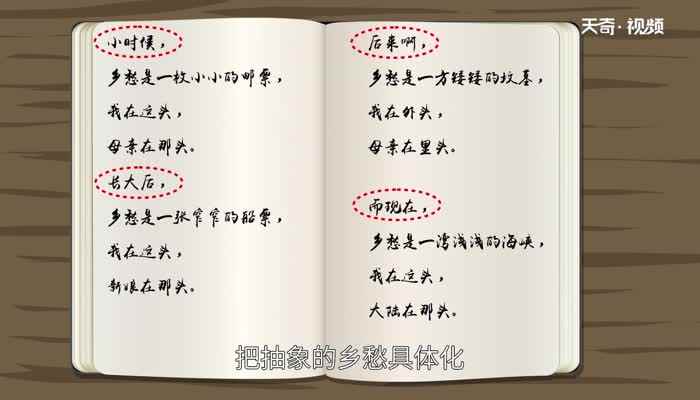 天奇·视频
小时候，
乡愁是一枚小小的邮票，
我在这头，
母亲在那头。
长大后，
乡愁是一张窄窄的船票，
我在这头，
新娘在那头。
后来啊，
乡愁是一方矮矮的坟墓，
我在外头，
母亲在里头。
而现在，
乡愁是一湾浅浅的海峡，
我在这头，
大陆在那头。
把抽象的乡愁具体化